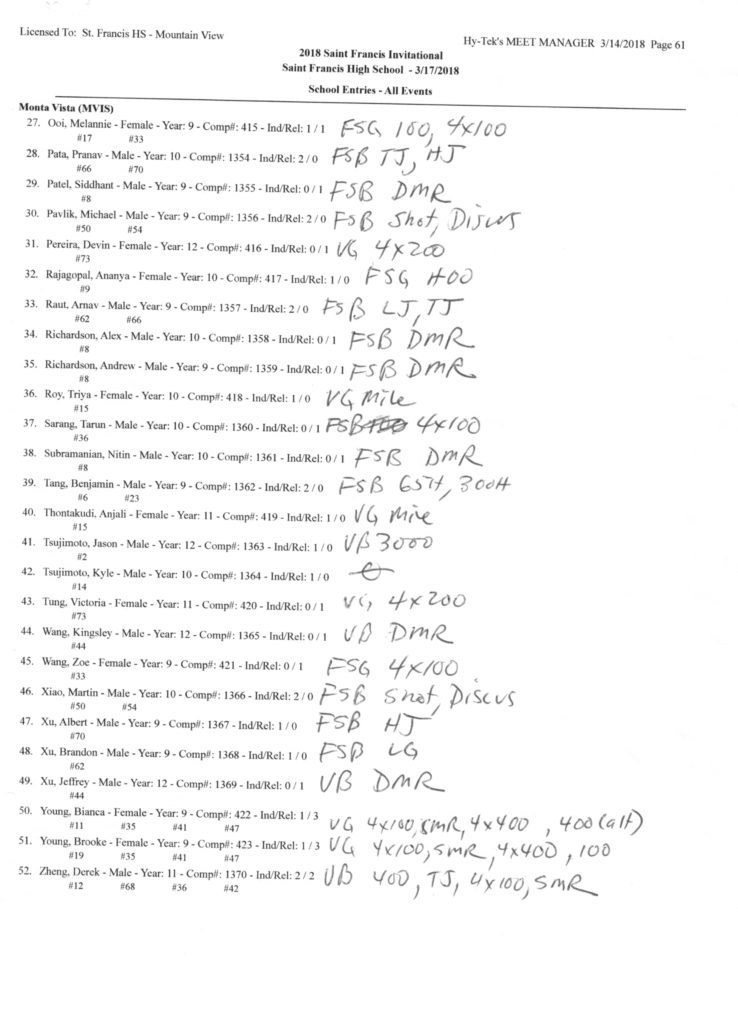 Licensed To: St. Francis HS - Mountain View
Hy-Tek's MEET MANAGER 3/14/2018 Page 61
2018 Saint Francis Invitational
Saint Francis High School - 3/17/2018
School Entries - All Events
Monta Vista (MVIS)
27. Ooi, Melannie - Female - Year: 9 - Comp#: 415 - Ind/Rel: 1 / 1 FSG 100, 4x100
#17 #33
28. Pata, Pranav - Male - Year: 10 - Comp#: 1354 - Ind/Rel: 2 / 0 FSB TJ, HJ
#66 #70
29. Patel, Siddhant - Male - Year: 9 - Comp#: 1355 - Ind/Rel: 0 / 1 FSB DMR
#8
30. Pavlik, Michael - Male - Year: 9 - Comp#: 1356 - Ind/Rel: 2 / 0 FSB Shot, Discus
#50 #54
31. Pereira, Devin - Female - Year: 12 - Comp#: 416 - Ind/Rel: 0 / 1 VG 4x200
#73
32. Rajagopal, Ananya - Female - Year: 10 - Comp#: 417 - Ind/Rel: 1 / 0 FSG 400
#9
33. Raut, Arnav - Male - Year: 9 - Comp#: 1357 - Ind/Rel: 2 / 0 FSB LJ, TJ
#62 #66
34. Richardson, Alex - Male - Year: 10 - Comp#: 1358 - Ind/Rel: 0 / 1 FSB DMR
#8
35. Richardson, Andrew - Male - Year: 9 - Comp#: 1359 - Ind/Rel: 0 / 1 FSB DMR
#8
36. Roy, Triya - Female - Year: 10 - Comp#: 418 - Ind/Rel: 1 / 0 VG Mile
#15
37. Sarang, Tarun - Male - Year: 10 - Comp#: 1360 - Ind/Rel: 0 / 1 FSB 4x100
#36
38. Subramanian, Nitin - Male - Year: 10 - Comp#: 1361 - Ind/Rel: 0 / 1 FSB DMR
#8
39. Tang, Benjamin - Male - Year: 9 - Comp#: 1362 - Ind/Rel: 2 / 0 FSB 65H, 300H
#6 #23
40. Thontakudi, Anjali - Female - Year: 11 - Comp#: 419 - Ind/Rel: 1 / 0 VG Mile
#15
41. Tsujimoto, Jason - Male - Year: 12 - Comp#: 1363 - Ind/Rel: 1 / 0 VB 3000
#2
42. Tsujimoto, Kyle - Male - Year: 10 - Comp#: 1364 - Ind/Rel: 1 / 0
#14
43. Tung, Victoria - Female - Year: 11 - Comp#: 420 - Ind/Rel: 0 / 1 VG, 4x200
#73
44. Wang, Kingsley - Male - Year: 12 - Comp#: 1365 - Ind/Rel: 0 / 1 VB DMR
#44
45. Wang, Zoe - Female - Year: 9 - Comp#: 421 - Ind/Rel: 0 / 1 FSG 4x100
#33
46. Xiao, Martin - Male - Year: 10 - Comp#: 1366 - Ind/Rel: 2 / 0 FSB Shot, Discus
#50 #54
47. Xu, Albert - Male - Year: 9 - Comp#: 1367 - Ind/Rel: 1 / 0 FSB HJ
#70
48. Xu, Brandon - Male - Year: 9 - Comp#: 1368 - Ind/Rel: 1 / 0 FSB LG
#62
49. Xu, Jeffrey - Male - Year: 12 - Comp#: 1369 - Ind/Rel: 0 / 1 VB DMR
#44
50. Young, Bianca - Female - Year: 9 - Comp#: 422 - Ind/Rel: 1 / 3 VG 4x100, SMR, 4x400, 400 (alt)
#11 #35 #41 #47
51. Young, Brooke - Female - Year: 9 - Comp#: 423 - Ind/Rel: 1 / 3 VG 4x100, SMR, 4x400, 100
#19 #35 #41 #47
52. Zheng, Derek - Male - Year: 11 - Comp#: 1370 - Ind/Rel: 2 / 2 VB 400, TJ, 4x100, SMR
#12 #68 #36 #42